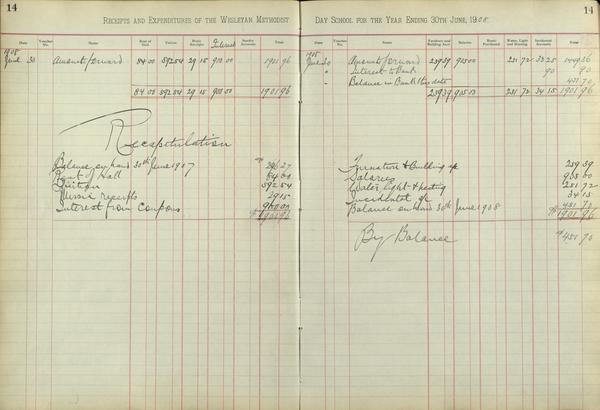 14
RECEIPTS AND EXPENDITURES OF THE WESLEYAN METHODIST DAY SCHOOL FOR THE YEAR ENDING 30TH JUNE, 1908.
14
Date Voucher No. Name Rent of Hall Tuition Music Receipts Interest Sundry Accounts Total
1908
June 30 Amount forward 84 00 592 54 29 15 900 00 1901 96
84 00 592 54 29 15 900 00 1901 96
Recapitulation
Balance on hand 30th June 1907 296 27
Rent of Hall 84 00
Tuition 592 54
Music receipts 29 15
Interest from Coupons 900 00
$1901 96
Date Voucher No. Name Furniture and Building Acct Salaries Music Purchased Water, Light and Heating Incidental Accounts Total
1908
June 30 Amount forward 239 39 33 25 1449 36
" Interest to Bank 90 90
" Balance in Bank this date 451 70
239 39 34 15 1901 96
Furniture & Building a/c 239 39
Salaries
Water, light & heating
Incidental a/c 34 15
Balance on hand 30th June 1908 451 70
$1901 96
By Balance $451 70